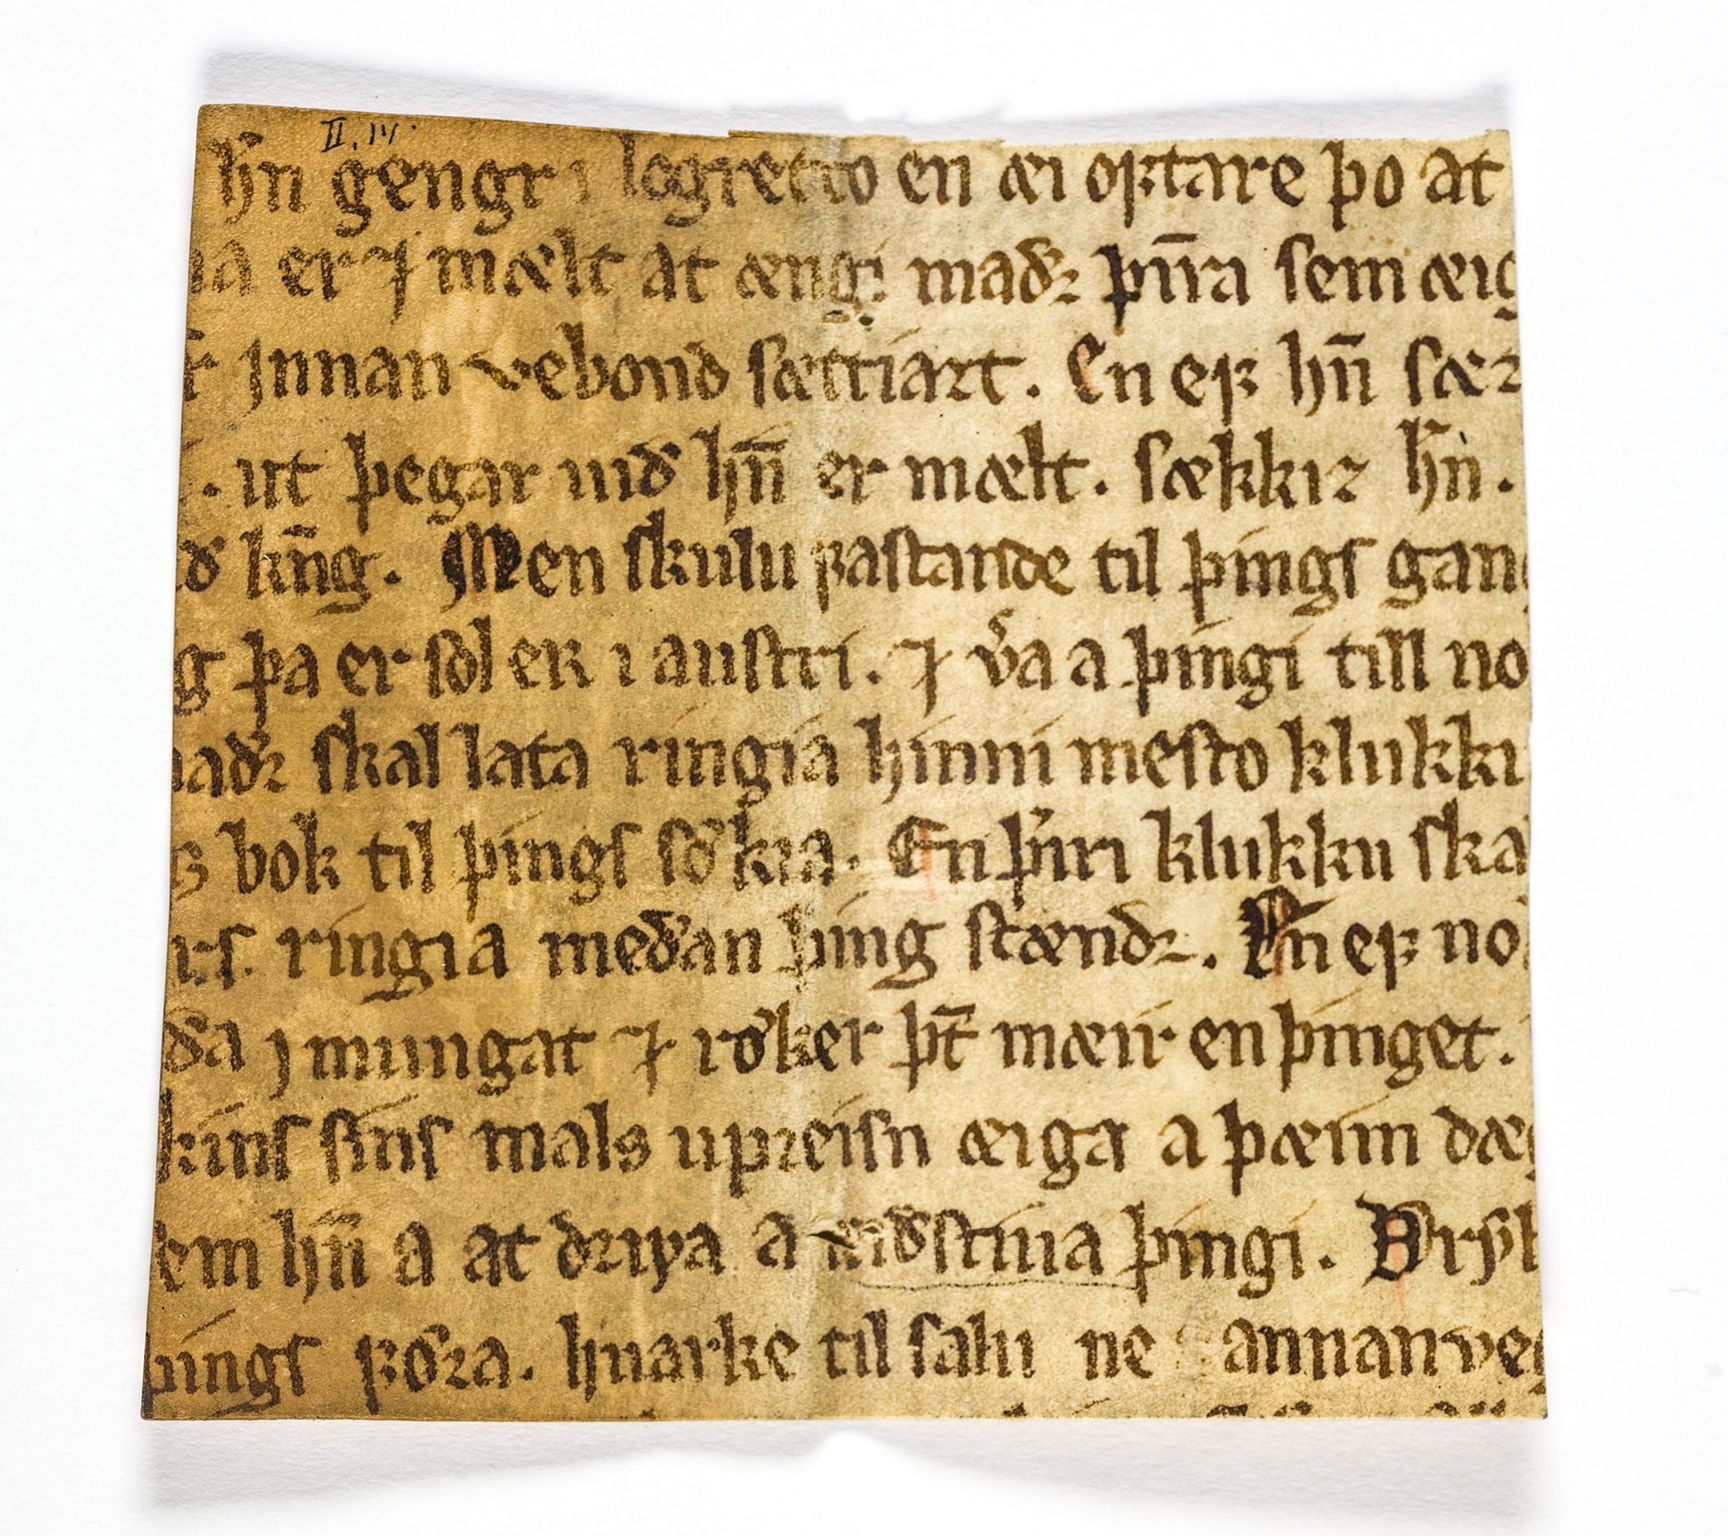 II. 14.
hn̄ gengr i logretto en æi optare þo at
na er ⁊ mælt at ængi maðꝛ þn̄ra sem æig
ꞇ̄ jnnan vebond sættiazt. En eꝼ hn̄ sæꝛ
. ut þegar uið hn̄ er mælt. sækkiꝛ hn̄.
ð kn̄g. Men skulu ꝼastande til þings gang
g þa er sol er i austri. ⁊ v̓a a þingi till no
aðꝛ skal lata ringia hinni mesto klukku
s bok til þings sǿkia. En þr̄ri klukku ska
rs ringia meðan þing stændꝛ. En eꝼ no
ða j mungat ⁊ rǿker þꞇ̄ mæir en þinget.
kins sins mals upꝛeisn æiga a þæim dæg
em hn̄ a at dꝛiꝼa a miðstiua þingi. Dryk
þings ꝼǿꝛa. huarke til salu ne annan veg